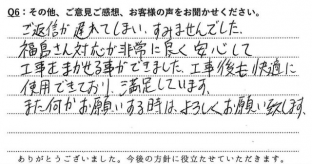 Q6：その他、ご意見ご感想、お客様の声をお聞かせください。
ご返信が遅れてしまい、すみませんでした。
福島さん対応が非常に良く安心して
工事をまかせる事ができました。工事後も快適に
使用できており、満足しています。
また何かお願いする時は、よろしくお願い致します。
ありがとうございました。今後の方針に役立たせていただきます。